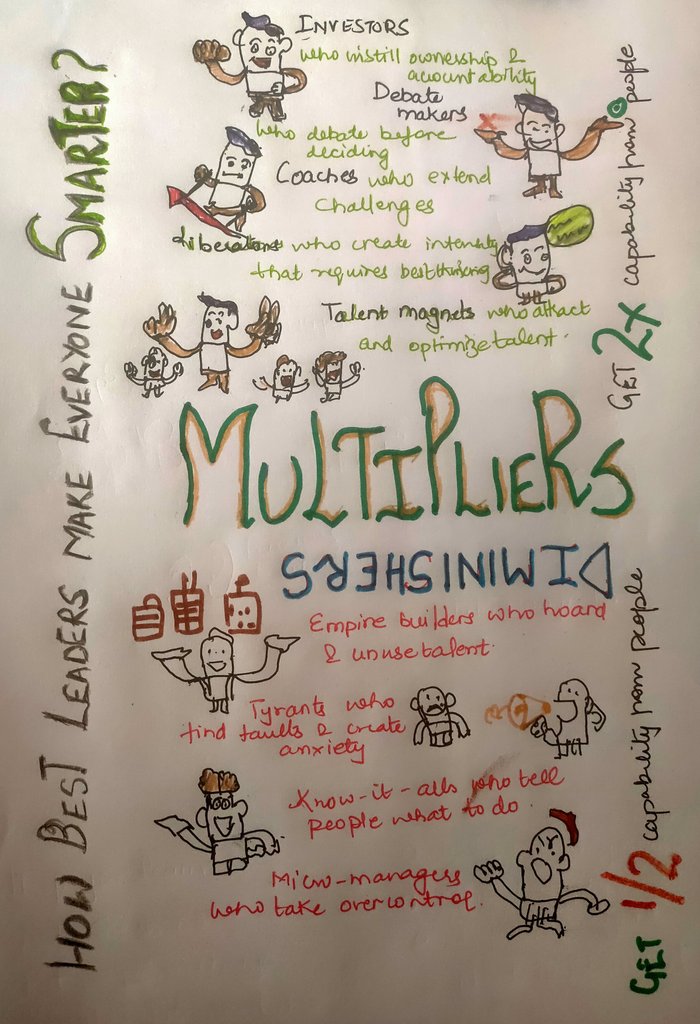 HOW BEST LEADERS MAKE EVERYONE SMARTER?
INVESTORS
who instill ownership &
accountability
Debate
makers
who debate before
deciding
Coaches who extend
challenges
Liberators who create intensity
that requires best thinking
Talent magnets who attract
and optimize talent.
GET 2x capability from people
MULTIPLIERS
DIMINISHERS
Empire builders who hoard
& unuse talent.
Tyrants who
find faults & create
anxiety
Know-it-alls who tell
people what to do.
Micro-managers
who take over control.
GET 1/2 capability from people